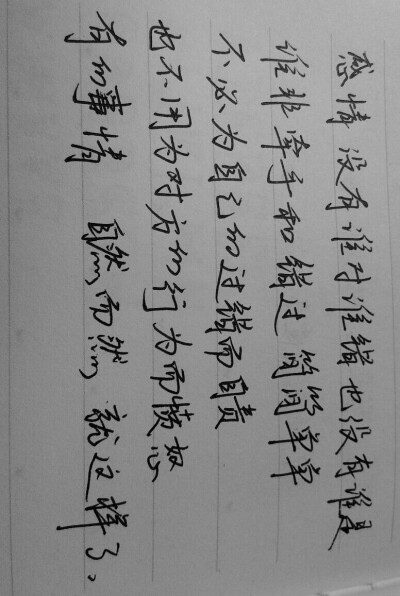 感情没有谁对谁错也没有谁是
谁非牵手和错过 简简单单
不必为自己的过错而自责
也不用为对方的行为而愤怒
有的事情 自然而然 就这样了。